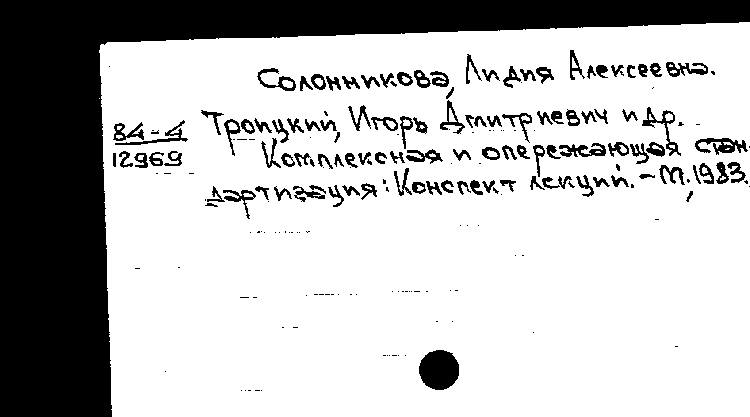 Солонникова, Лидия Алексеевна.
84-4 Троицкий, Игорь Дмитриевич и др.
12969 Комплексная и опережающая стан-
дартизация: Конспект лекций. – М., 1983.